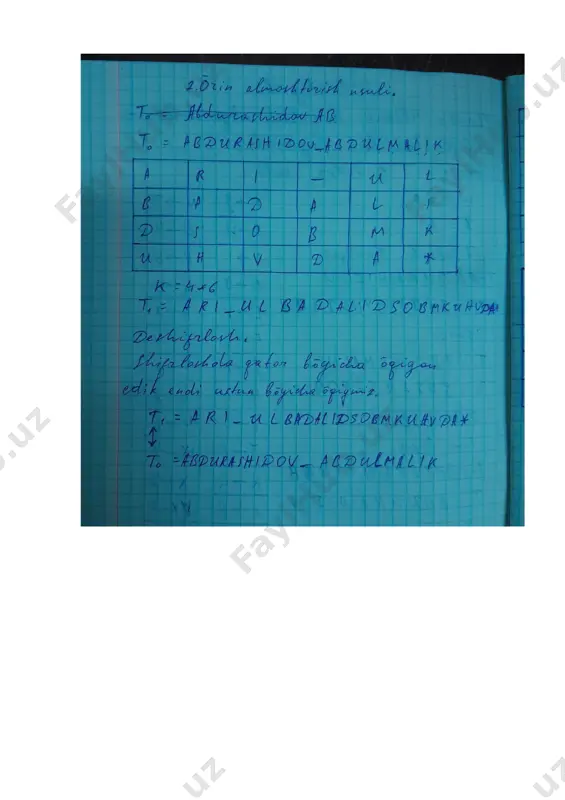 2. Õrin almashtirish usuli.
T₀ = Abdurashidov AB
T₀ = ABDURASHIDOV_ABDULMALIK
A R I – U L
B A D A L I
D S O B M K
U H V D A *
K = 4x6
T₁ = ARI_UL BADALIDSOBMKUHVDA*
Deshifrlash.
Shifrlashda qator bõyicha õqigan
edik endi ustun bõyicha õqiymiz.
T₁ = ARI_ULBADALIDSOBMKUHVDA*
↕
T₀ = ABDURASHIDOV_ABDULMALIK